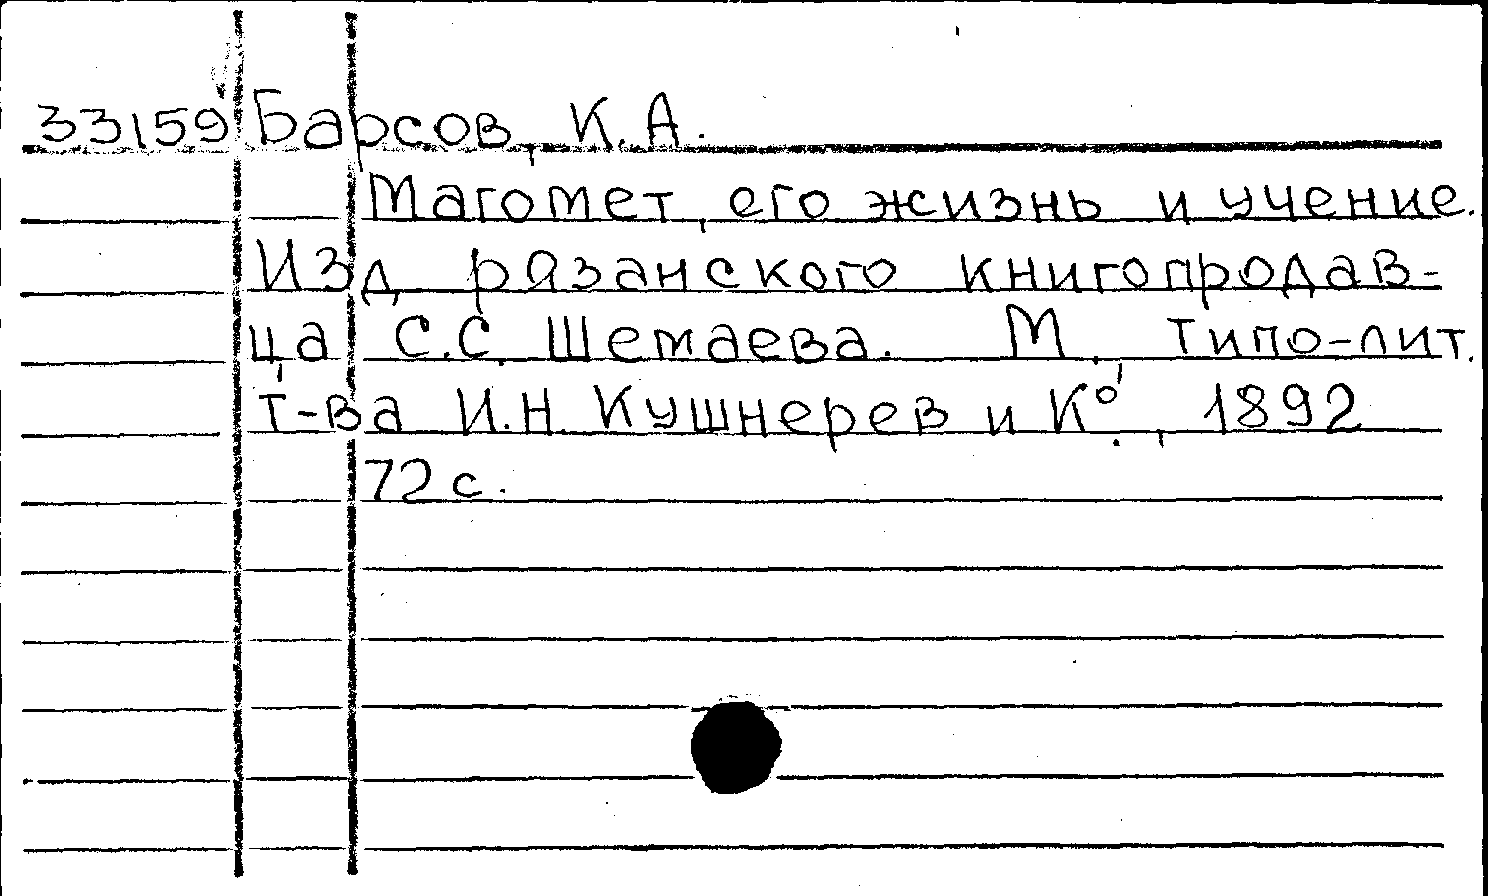 33159 Барсов, К.А.
Магомет, его жизнь и учение.
Изд. рязанского книгопродав-
ца С.С. Шемаева. М., Типо-лит.
т-ва И.Н. Кушнерев и К°., 1892
72 с.